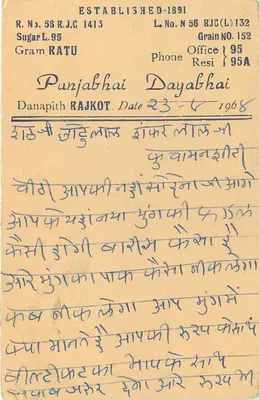 ESTABLISHED-1891
R. No. 56 R.J.C 1413
L. No. N 56 RJC(L)132
Sugar L. 95
Grain NO. 152
Gram RATU
Phone Office 95
Resi 95A
Punjabhai Dayabhai
Danapith RAJKOT. Date 23- 1968
शंकर लाल जी
चीठी आपकी नहीं सो देना जी आगे
आपके यहां नया मुंग की
कैसी होगी बारीस कैसा है
ओर मुंग का पाक कैसा नीकलेगा
कब नीकलेगा आप मुंग में
क्या मानते है आपकी
आपके साथ
जवाब जरुर देना ओर